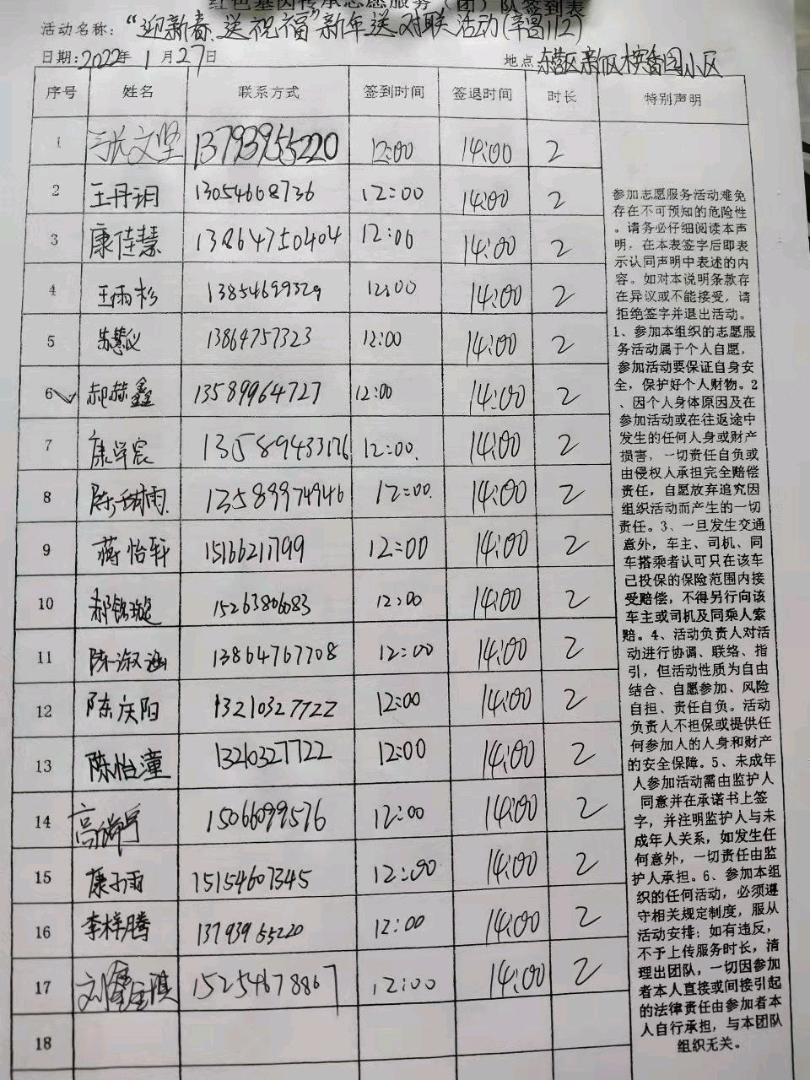 红色基因传承志愿服务(团)队签到表
活动名称:"迎新春、送祝福"新年送对联活动(辛昌112)
日期:2022年1月27日 地点 东营区新区槟香园小区
序号 姓名 联系方式 签到时间 签退时间 时长 特别声明
1 张文坚 13793955220 12:00 14:00 2
2 王丹玥 13054668736 12:00 14:00 2
3 康佳慧 13864750404 12:00 14:00 2
4 王雨杉 13854699329 12:00 14:00 2
5 13864757323 12:00 14:00 2
6 郝赫鑫 13589964727 12:00 14:00 2
7 康学宸 12:00 14:00 2
8 13589974946 12:00 14:00 2
9 蒋怡轩 15166211799 12:00 14:00 2
10 郝铭璇 15263806083 12:00 14:00 2
11 陈淑涵 13864767708 12:00 14:00 2
12 陈庆阳 13210327722 12:00 14:00 2
13 陈怡潼 13210327722 12:00 14:00 2
14 15066099576 12:00 14:00 2
15 康子雨 15154607345 12:00 14:00 2
16 李梓腾 13793955220 12:00 14:00 2
17 15254678867 12:00 14:00 2
18
参加志愿服务活动难免
存在不可预知的危险性
。请务必仔细阅读本声
明,在本表签字后即表
示认同声明中表述的内
容。如对本说明条款存
在异议或不能接受,请
拒绝签字并退出活动。
1、参加本组织的志愿服
务活动属于个人自愿,
参加活动要保证自身安
全,保护好个人财物。2
、因个人身体原因及在
参加活动或在往返途中
发生的任何人身或财产
损害,一切责任自负或
由侵权人承担完全赔偿
责任,自愿放弃追究因
组织活动而产生的一切
责任。3、一旦发生交通
意外,车主、司机、同
车搭乘者认可只在该车
已投保的保险范围内接
受赔偿,不得另行向该
车主或司机及同乘人索
赔。4、活动负责人对活
动进行协调、联络、指
引,但活动性质为自由
结合、自愿参加、风险
自担、责任自负。活动
负责人不担保或提供任
何参加人的人身和财产
的安全保障。5、未成年
人参加活动需由监护人
同意并在承诺书上签
字,并注明监护人与未
成年人关系,如发生任
何意外,一切责任由监
护人承担。6、参加本组
织的任何活动,必须遵
守相关规定制度,服从
活动安排;如有违反,
不予上传服务时长,清
理出团队,一切因参加
者本人直接或间接引起
的法律责任由参加者本
人自行承担,与本团队
组织无关。